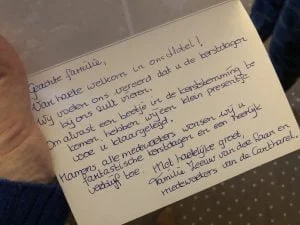 Geachte familie,
Van harte welkom in ons Hotel!
Wij voelen ons vereerd dat u de kerstdagen
bij ons zult vieren.
Om alvast een beetje in de kerststemming te
komen hebben wij een klein presentje
voor u klaargelegd.
Namens alle medewerkers wensen wij u
fantastische kerstdagen en een heerlijk
verblijf toe. Met hartelijke groet,
Familie Zeeuw van der Laan en
medewerkers van de Cantharel.